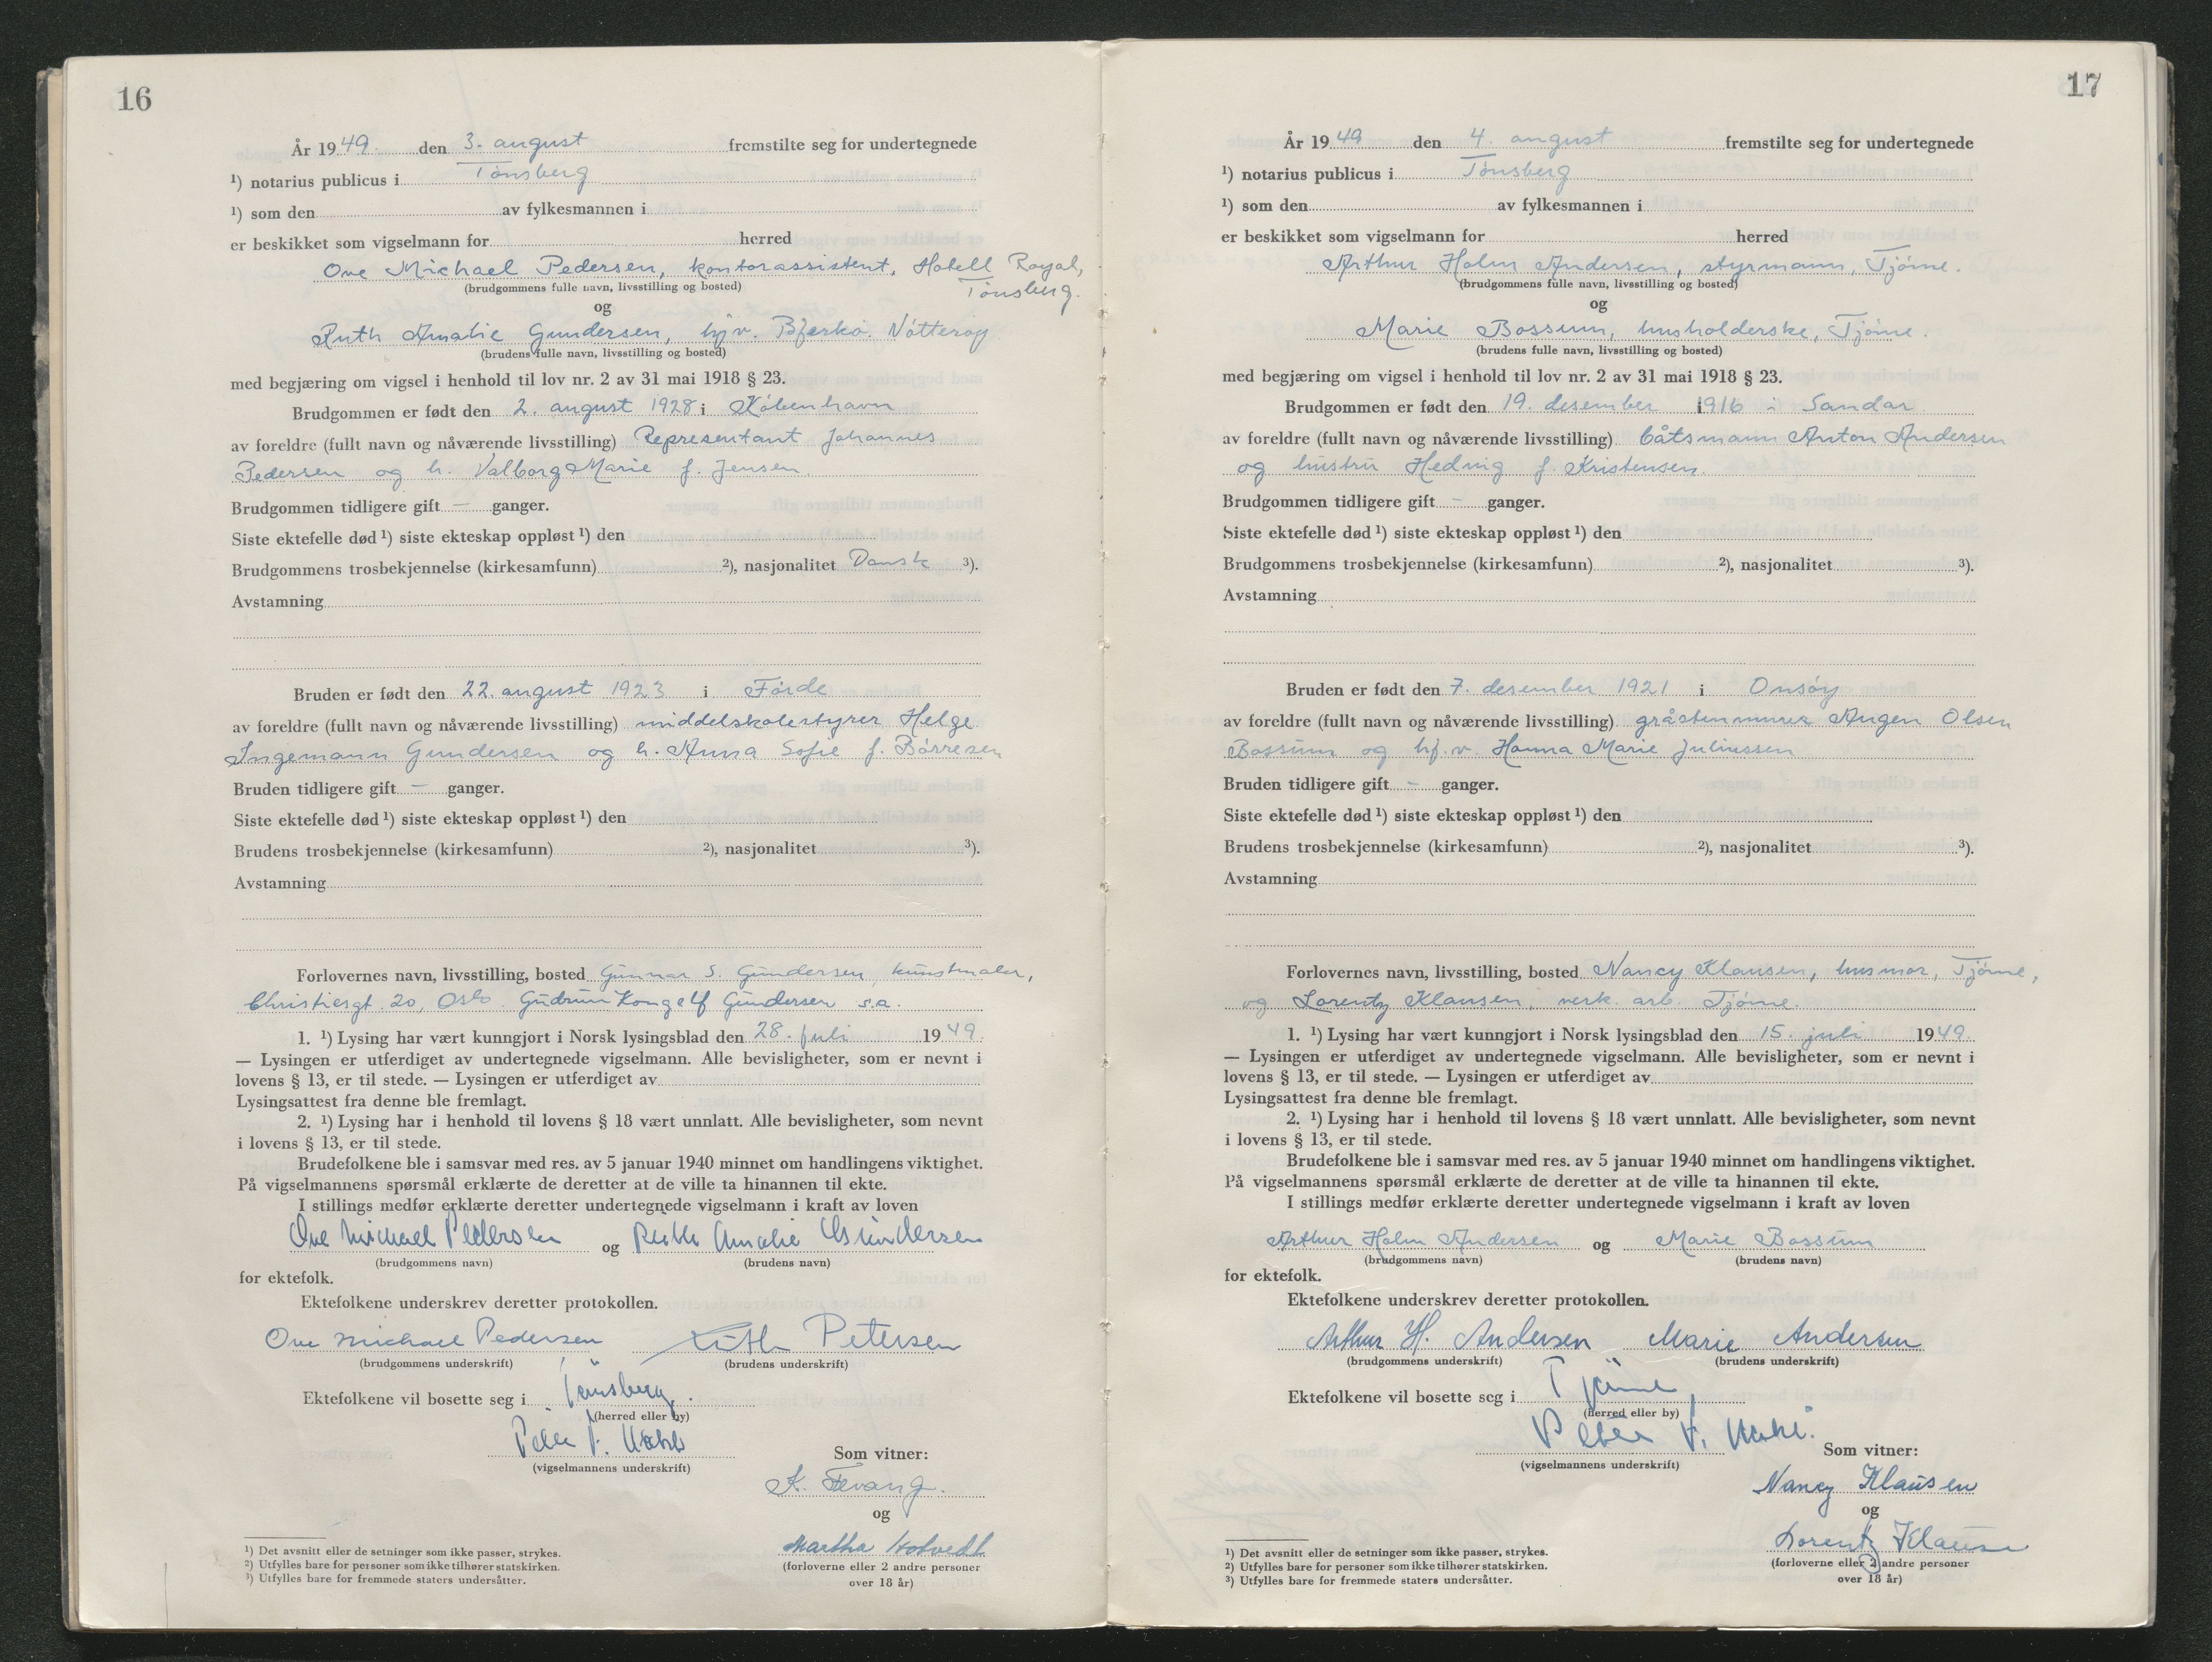 16
År 1949. den 3. august fremstilte seg for undertegnede
¹) notarius publicus i Tønsberg
¹) som den av fylkesmannen i
er beskikket som vigselmann for herred
Ove Michael Pedersen, kontorassistent, Hotell Royal,
(brudgommens fulle navn, livsstilling og bosted) Tønsberg.
og
Ruth Amalie Gundersen, hjv. Bjerkø. Nøtterøy
(brudens fulle navn, livsstilling og bosted)
med begjæring om vigsel i henhold til lov nr. 2 av 31 mai 1918 § 23.
Brudgommen er født den 2. august 1928 i København
av foreldre (fullt navn og nåværende livsstilling) Representant Johannes
Pedersen og h. Valborg Marie f. Jensen.
Brudgommen tidligere gift — ganger.
Siste ektefelle død ¹) siste ekteskap oppløst ¹) den
Brudgommens trosbekjennelse (kirkesamfunn) ²), nasjonalitet Dansk ³).
Avstamning
Bruden er født den 22. august 1923 i Førde
av foreldre (fullt navn og nåværende livsstilling) middelskolestyrer Helge
Ingemann Gundersen og h. Anna Sofie f. Børresen
Bruden tidligere gift — ganger.
Siste ektefelle død ¹) siste ekteskap oppløst ¹) den
Brudens trosbekjennelse (kirkesamfunn) ²), nasjonalitet ³).
Avstamning
Forlovernes navn, livsstilling, bosted Gunnar S. Gundersen, kunstmaler,
Christiesgt. 20, Oslo. Gudrun Kongelf Gundersen s.a.
1. ¹) Lysing har vært kunngjort i Norsk lysingsblad den 28. juli 1949.
— Lysingen er utferdiget av undertegnede vigselmann. Alle bevisligheter, som er nevnt i
lovens § 13, er til stede. — Lysingen er utferdiget av
Lysingsattest fra denne ble fremlagt.
2. ¹) Lysing har i henhold til lovens § 18 vært unnlatt. Alle bevisligheter, som nevnt
i lovens § 13, er til stede.
Brudefolkene ble i samsvar med res. av 5 januar 1940 minnet om handlingens viktighet.
På vigselmannens spørsmål erklærte de deretter at de ville ta hinannen til ekte.
I stillings medfør erklærte deretter undertegnede vigselmann i kraft av loven
Ove Michael Pedersen og Ruth Amalie Gundersen
(brudgommens navn) (brudens navn)
for ektefolk.
Ektefolkene underskrev deretter protokollen.
Ove Michael Pedersen Ruth Petersen
(brudgommens underskrift) (brudens underskrift)
Ektefolkene vil bosette seg i Tønsberg.
(herred eller by)
(vigselmannens underskrift)
Som vitner:
K. Fevang.
og
Martha Hotvedt
(forloverne eller 2 andre personer
over 18 år)
¹) Det avsnitt eller de setninger som ikke passer, strykes.
²) Utfylles bare for personer som ikke tilhører statskirken.
³) Utfylles bare for fremmede staters undersåtter.
17
År 1949 den 4. august fremstilte seg for undertegnede
¹) notarius publicus i Tønsberg
¹) som den av fylkesmannen i
er beskikket som vigselmann for herred
Arthur Holm Andersen, styrmann, Tjøme.
(brudgommens fulle navn, livsstilling og bosted)
og
Marie Bossum, husholderske, Tjøme.
(brudens fulle navn, livsstilling og bosted)
med begjæring om vigsel i henhold til lov nr. 2 av 31 mai 1918 § 23.
Brudgommen er født den 19. desember 1916 i Sandar
av foreldre (fullt navn og nåværende livsstilling) båtsmann Anton Andersen
og hustru Hedvig f. Kristensen.
Brudgommen tidligere gift — ganger.
Siste ektefelle død ¹) siste ekteskap oppløst ¹) den
Brudgommens trosbekjennelse (kirkesamfunn) ²), nasjonalitet ³).
Avstamning
Bruden er født den 7. desember 1921 i Onsøy
av foreldre (fullt navn og nåværende livsstilling) gråstenmurer Augen Olsen
Bossum og hj.v. Hanna Marie Juliussen
Bruden tidligere gift — ganger.
Siste ektefelle død ¹) siste ekteskap oppløst ¹) den
Brudens trosbekjennelse (kirkesamfunn) ²), nasjonalitet ³).
Avstamning
Forlovernes navn, livsstilling, bosted Nancy Klausen, husmor, Tjøme,
og Lorentz Klausen, verk. arb. Tjøme.
1. ¹) Lysing har vært kunngjort i Norsk lysingsblad den 15. juli 1949.
— Lysingen er utferdiget av undertegnede vigselmann. Alle bevisligheter, som er nevnt i
lovens § 13, er til stede. — Lysingen er utferdiget av
Lysingsattest fra denne ble fremlagt.
2. ¹) Lysing har i henhold til lovens § 18 vært unnlatt. Alle bevisligheter, som nevnt
i lovens § 13, er til stede.
Brudefolkene ble i samsvar med res. av 5 januar 1940 minnet om handlingens viktighet.
På vigselmannens spørsmål erklærte de deretter at de ville ta hinannen til ekte.
I stillings medfør erklærte deretter undertegnede vigselmann i kraft av loven
Arthur Holm Andersen og Marie Bossum
(brudgommens navn) (brudens navn)
for ektefolk.
Ektefolkene underskrev deretter protokollen.
Arthur H. Andersen Marie Andersen
(brudgommens underskrift) (brudens underskrift)
Ektefolkene vil bosette seg i Tjøme
(herred eller by)
(vigselmannens underskrift)
Som vitner:
Nancy Klausen
og
Lorentz Klausen
(forloverne eller 2 andre personer
over 18 år)
¹) Det avsnitt eller de setninger som ikke passer, strykes.
²) Utfylles bare for personer som ikke tilhører statskirken.
³) Utfylles bare for fremmede staters undersåtter.